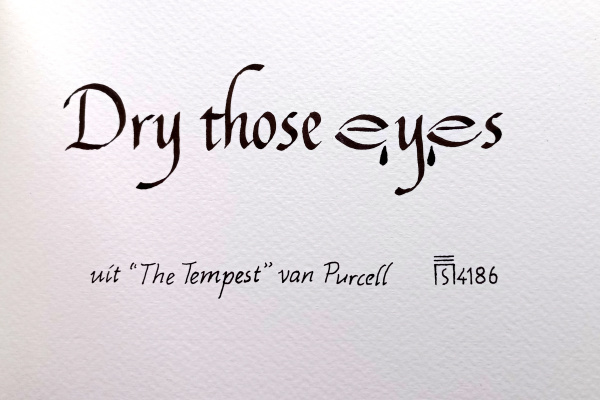 Dry those eyes
uit “The Tempest” van Purcell 4186